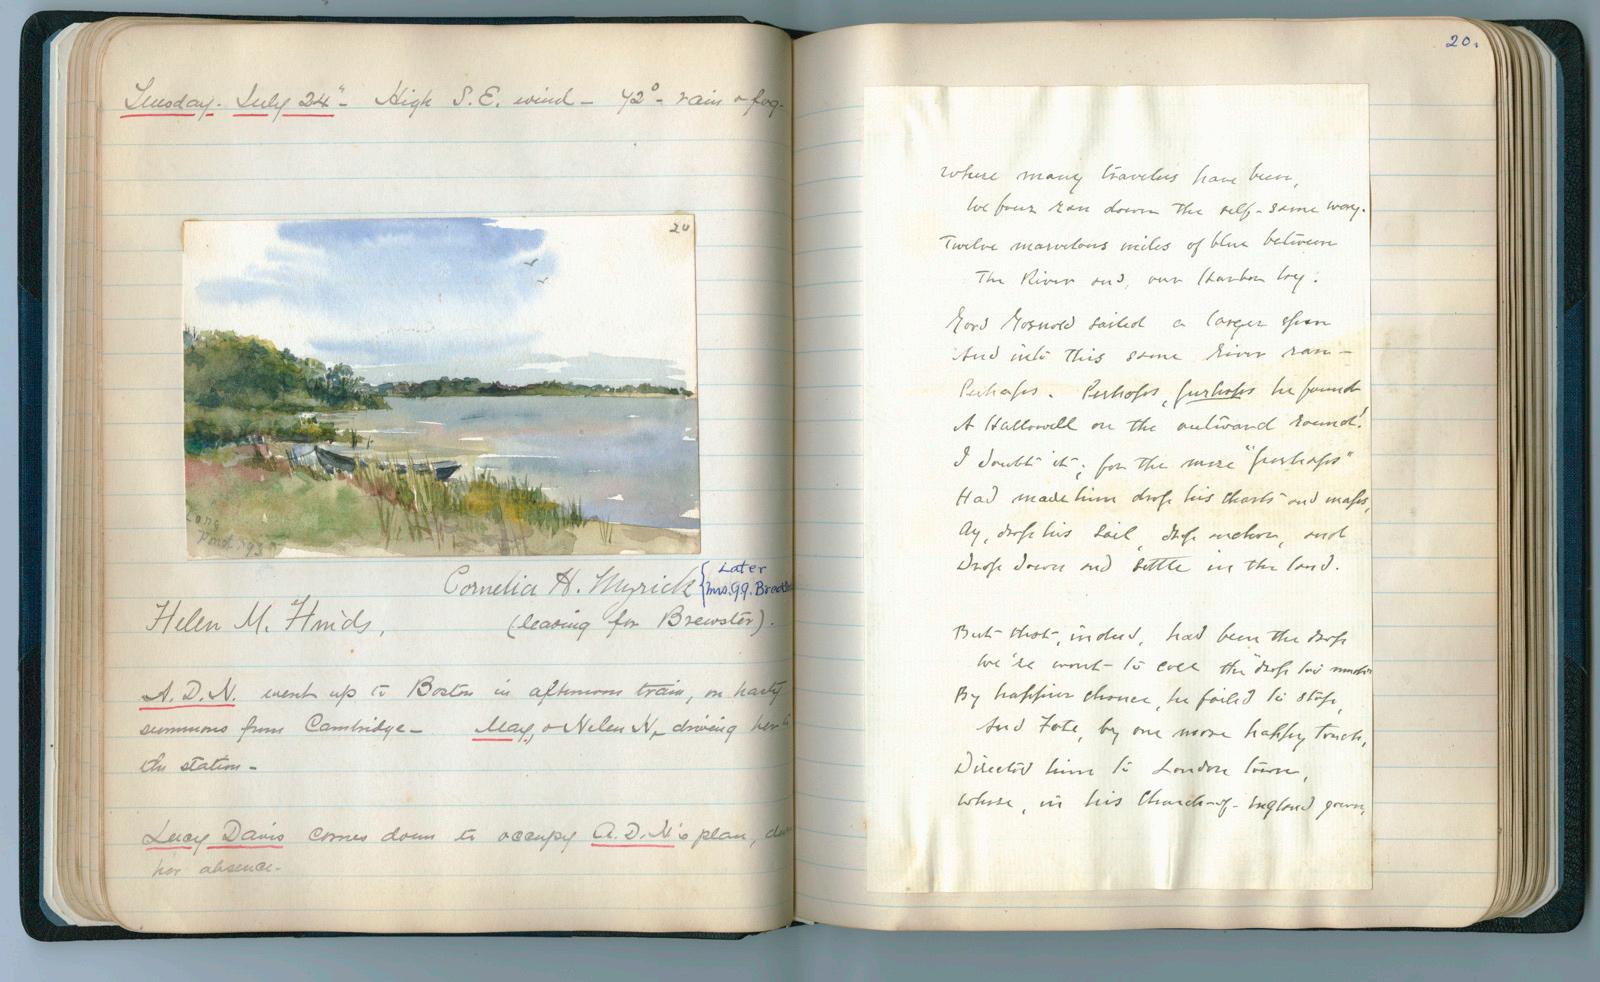 Tuesday. July 24" - High S.E. wind - 72° - rain & fog -
24
Long
Pond. '93
Cornelia H. Myrick { Later
Mrs. G.G. Brad
Helen M. Hinds,
(leaving for Brewster).
A.D.N. went up to Boston in afternoon train, on hasty
summons from Cambridge - May, & Helen N. driving her to
the station -
Lucy Davis comes down to occupy A.D.N.'s place,
her absence -
20.
Where many travelers have been,
We four ran down the self-same way.
Twelve marvelous miles of blue between
The River and, our Harbor bay.
Lord Gosnold sailed a larger span
And into this same River ran -
Perhaps. Perhaps, perhaps he found
A Hallowell on the outward round!
I doubt it; for the mere "perhaps"
Had made him drop his charts and maps,
Ay, drop his sail, drop anchor, and
Drop down and settle in the land.
But that, indeed, had been the drop
We're wont to call the "drop too much"
By happier chance, he failed to stop,
And Fate, by one more happy touch,
Directed him to London town,
Where, in his Church-of-England gown,